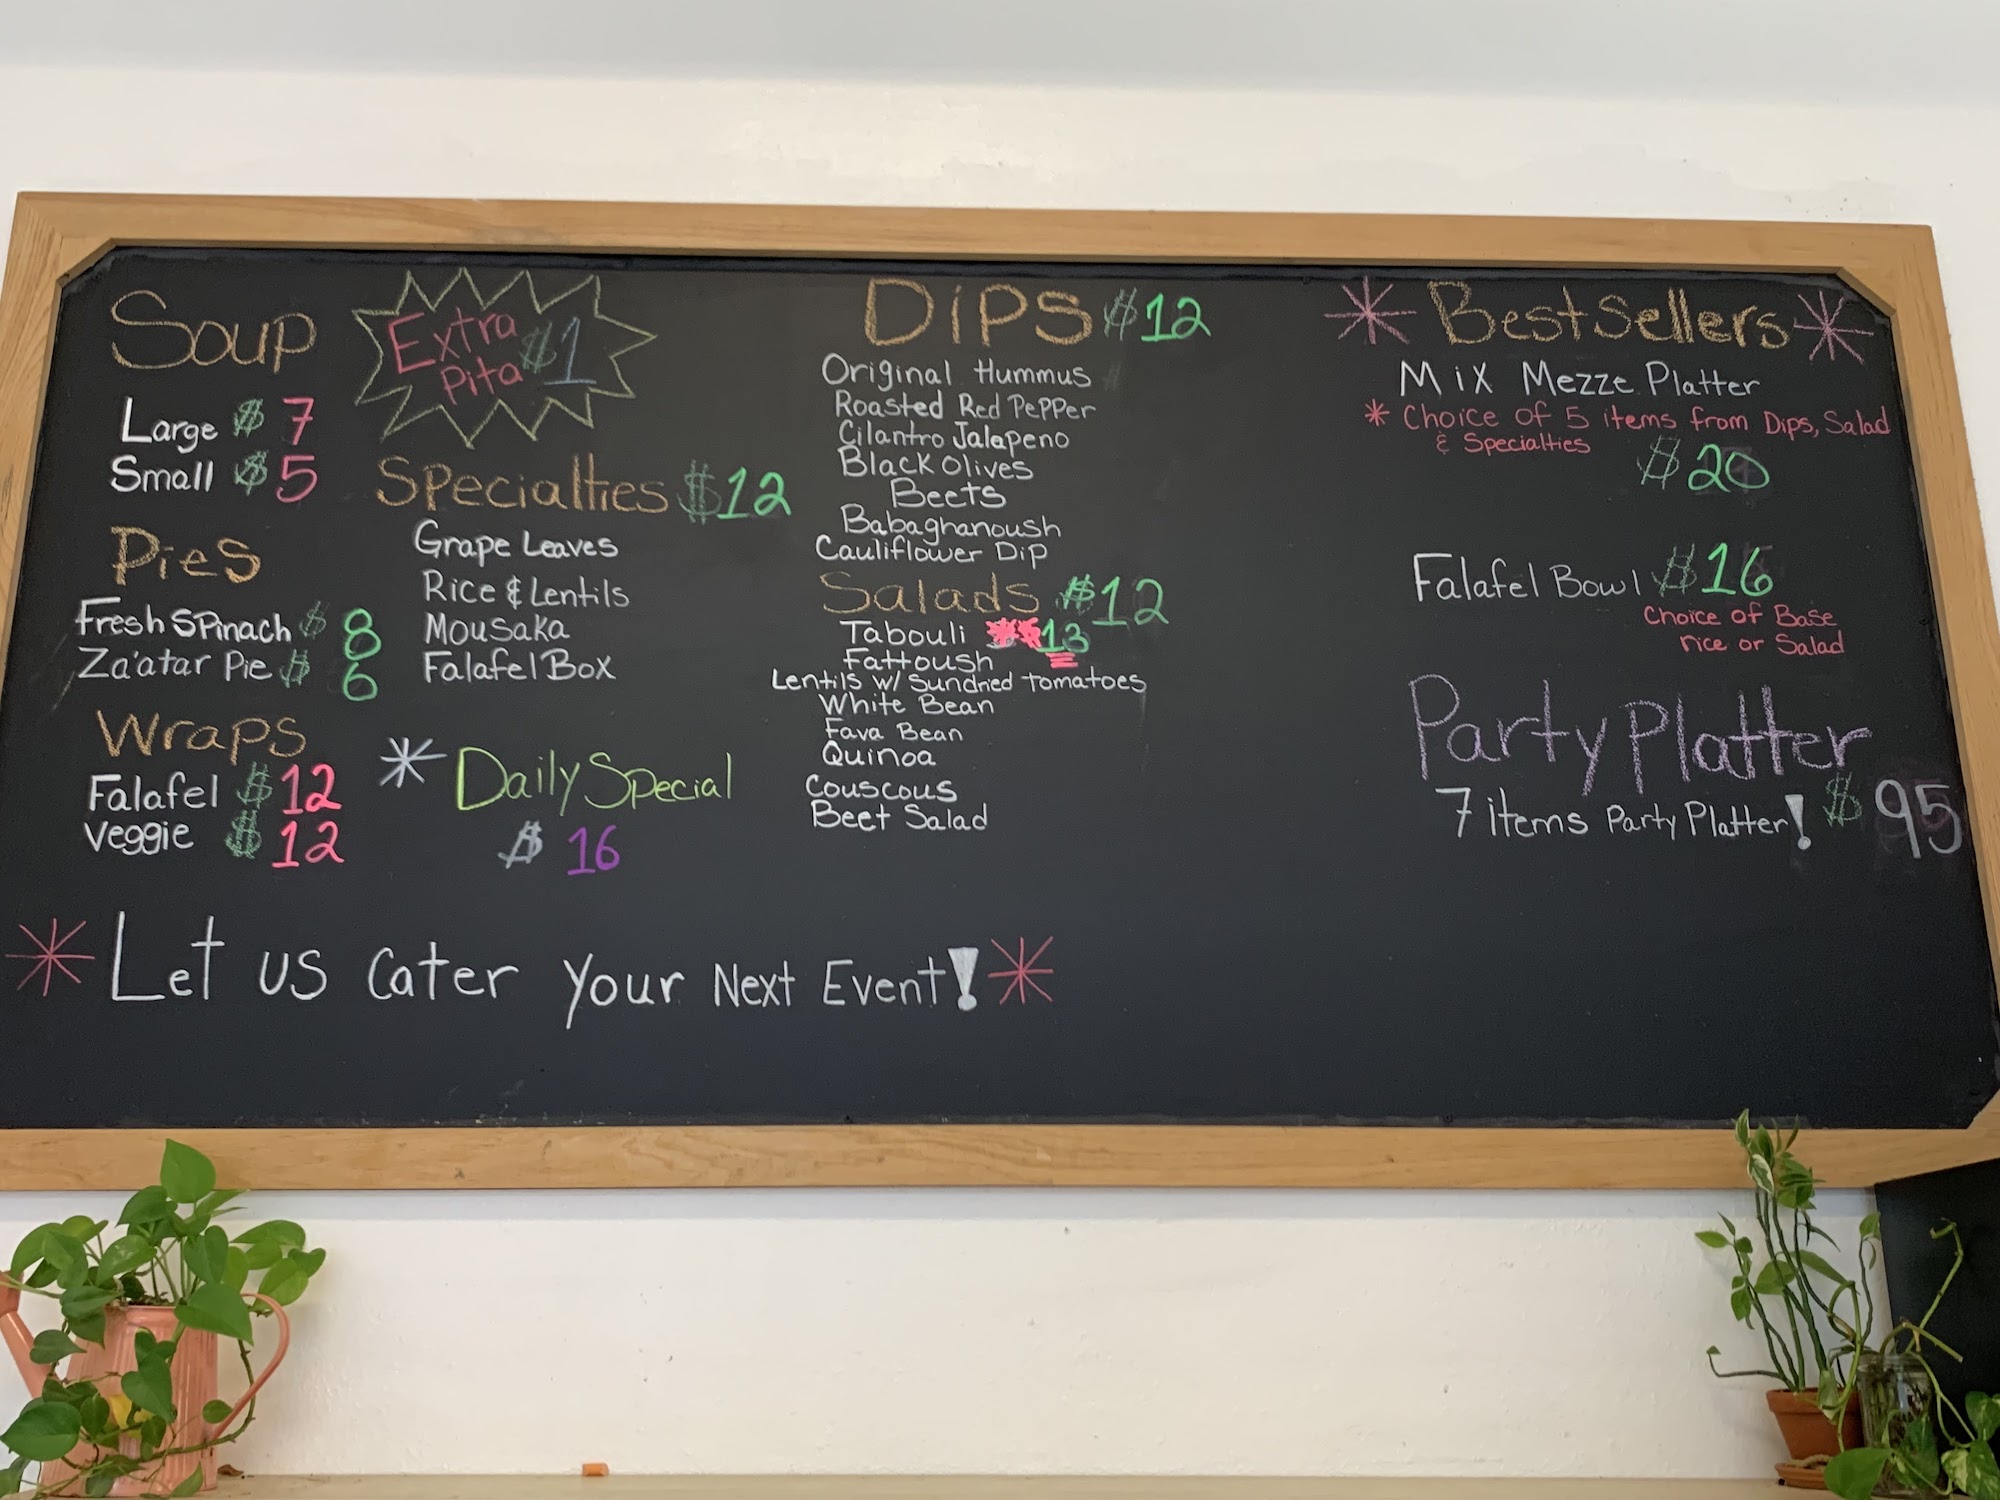 Soup
Large $ 7
Small $ 5
Extra
Pita $1
Pies
Fresh Spinach $ 8
Za'atar Pie $ 6
Wraps
Falafel $ 12
Veggie $ 12
Specialties $12
Grape Leaves
Rice & Lentils
Mousaka
Falafel Box
* Daily Special
$ 16
Dips $12
Original Hummus
Roasted Red Pepper
Cilantro Jalapeno
Black Olives
Beets
Babaghanoush
Cauliflower Dip
Salads $12
Tabouli 13
Fattoush
Lentils w/ Sundried Tomatoes
White Bean
Fava Bean
Quinoa
Couscous
Beet Salad
* Best Sellers *
Mix Mezze Platter
* Choice of 5 items from Dips, Salad
& Specialties
$20
Falafel Bowl $16
Choice of Base
rice or Salad
Party Platter
7 items Party Platter! $ 95
* Let us cater your Next Event! *